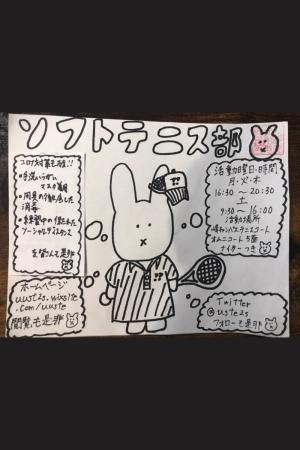 ソフトテニス部
コロナ対策も万全!!
手洗いうがい
マスク着用
用具の
消毒
練習中の
ソーシャルディスタンス
是非
ホームページ
uust2s.wixsite
.com/uuste
閲覧も是非
活動曜日・時間
月・火・木
16:30 ~ 20:30
土
9:30 ~ 16:00
活動場所
峰キャンパステニスコート
オムニコート 5面
ナイターつき
Twitter
@uste2s
フォローも是非